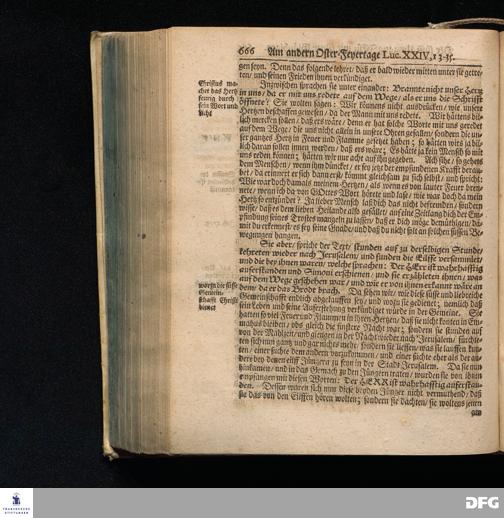 666 Am andern Oster-Feyertage Luc. XXIV, 13-35.
gen seyn. Denn das folgende lehret, daß er bald wieder mitten unter sie getre-
ten, und seinen Frieden ihnen verkündiget.
Inzwischen sprachen sie unter einander: Brannte nicht unser Hertz
in uns, da er mit uns redete auf dem Wege, als er uns die Schrifft
öffnete? Sie wolten sagen: Wir können nicht ausdrücken, wie unsere
Hertzen beschaffen gewesen, da der Mann mit uns redete. Wir hättens bil-
lich mercken sollen, daß ers wäre, denn er hat solche Worte mit uns geredet
auf dem Wege, die uns nicht allein in unsere Ohren gefallen, sondern die un-
ser gantzes Hertz in Feuer und Flamme gesetzet haben; so hätten wirs ja bil-
lich daran sollen innen worden, daß ers wäre; Es hätte ja kein Mensch so mit
uns reden können; hätten wir nur acht auf ihn gegeben. Ach siehe, so gehets
dem Menschen, wenn ihm düncket, er sey jetzt der empfundenen Krafft berau-
bet, da erinnert er sich dann erst, kömmt gleichsam zu sich selbst, und spricht:
Wie war doch damals meinem Hertzen, als wenn es von lauter Feuer bren-
nete, wenn ich da von GOttes Wort hörete und lase, wie war doch da mein
Hertz so entzündet? Ja lieber Mensch, laß dich das nicht befremden, sondern
wisse, daß es dem lieben Heilande also gefället, auf eine Zeitlang dich der Em-
pfindung seines Trostes mangeln zu lassen, daß er dich möge demüthigen, da-
mit du erkennest, es sey seine Gnade, und daß du nicht solt an solchen süssen Be-
wegungen hangen.
Sie aber, spricht der Text, stunden auf zu derselbigen Stunde,
kehreten wieder nach Jerusalem, und funden die Eilffe versammlet,
und die bey ihnen waren, welche sprachen: Der HErr ist wahrhafftig
auferstanden und Simoni erschienen, und sie erzähleten ihnen, was
auf dem Wege geschehen war, und wie er von ihnen erkannt wäre an
dem, da er das Brodt brach. Da sehen wir, wie diese süsse und liebreiche
Gemeinschafft endlich abgelauffen sey, und wozu sie gedienet; nemlich daß
sein Leben und seine Auferstehung verkündiget würde in der Gemeine. Sie
hatten so viel Feuer und Flammen in ihren Hertzen, daß sie nicht konten in Em-
mahus bleiben, obs gleich die finstere Nacht war; sondern sie stunden auf
von der Mahlzeit, und giengen in der Nacht wieder nach Jerusalem, fürchte-
ten sich nun gantz und gar nichts mehr, sondern sie lieffen, was sie lauffen kun-
ten, einer suchte dem andern vorzukommen, und einer suchte eher als der an-
dere bey denen eilff Jüngern zu seyn in der Stadt Jerusalem. Da sie nun
hinkamen, und in das Gemach zu den Jüngern traten, wurden sie von ihnen
empfangen mit diesen Worten: Der HERR ist wahrhafftig auferstan-
den. Dessen waren sich nun diese beyden Jünger nicht vermuthend, daß
sie das von den Eilffen hören wolten; sondern sie dachten, sie woltens jenen
Christus ma-
chet das Hertz
feurig durch
sein Wort und
Licht
worzu die süsse
Gemein-
schafft Christi
dienet
DFG
FRANCKESCHE
STIFTUNGEN